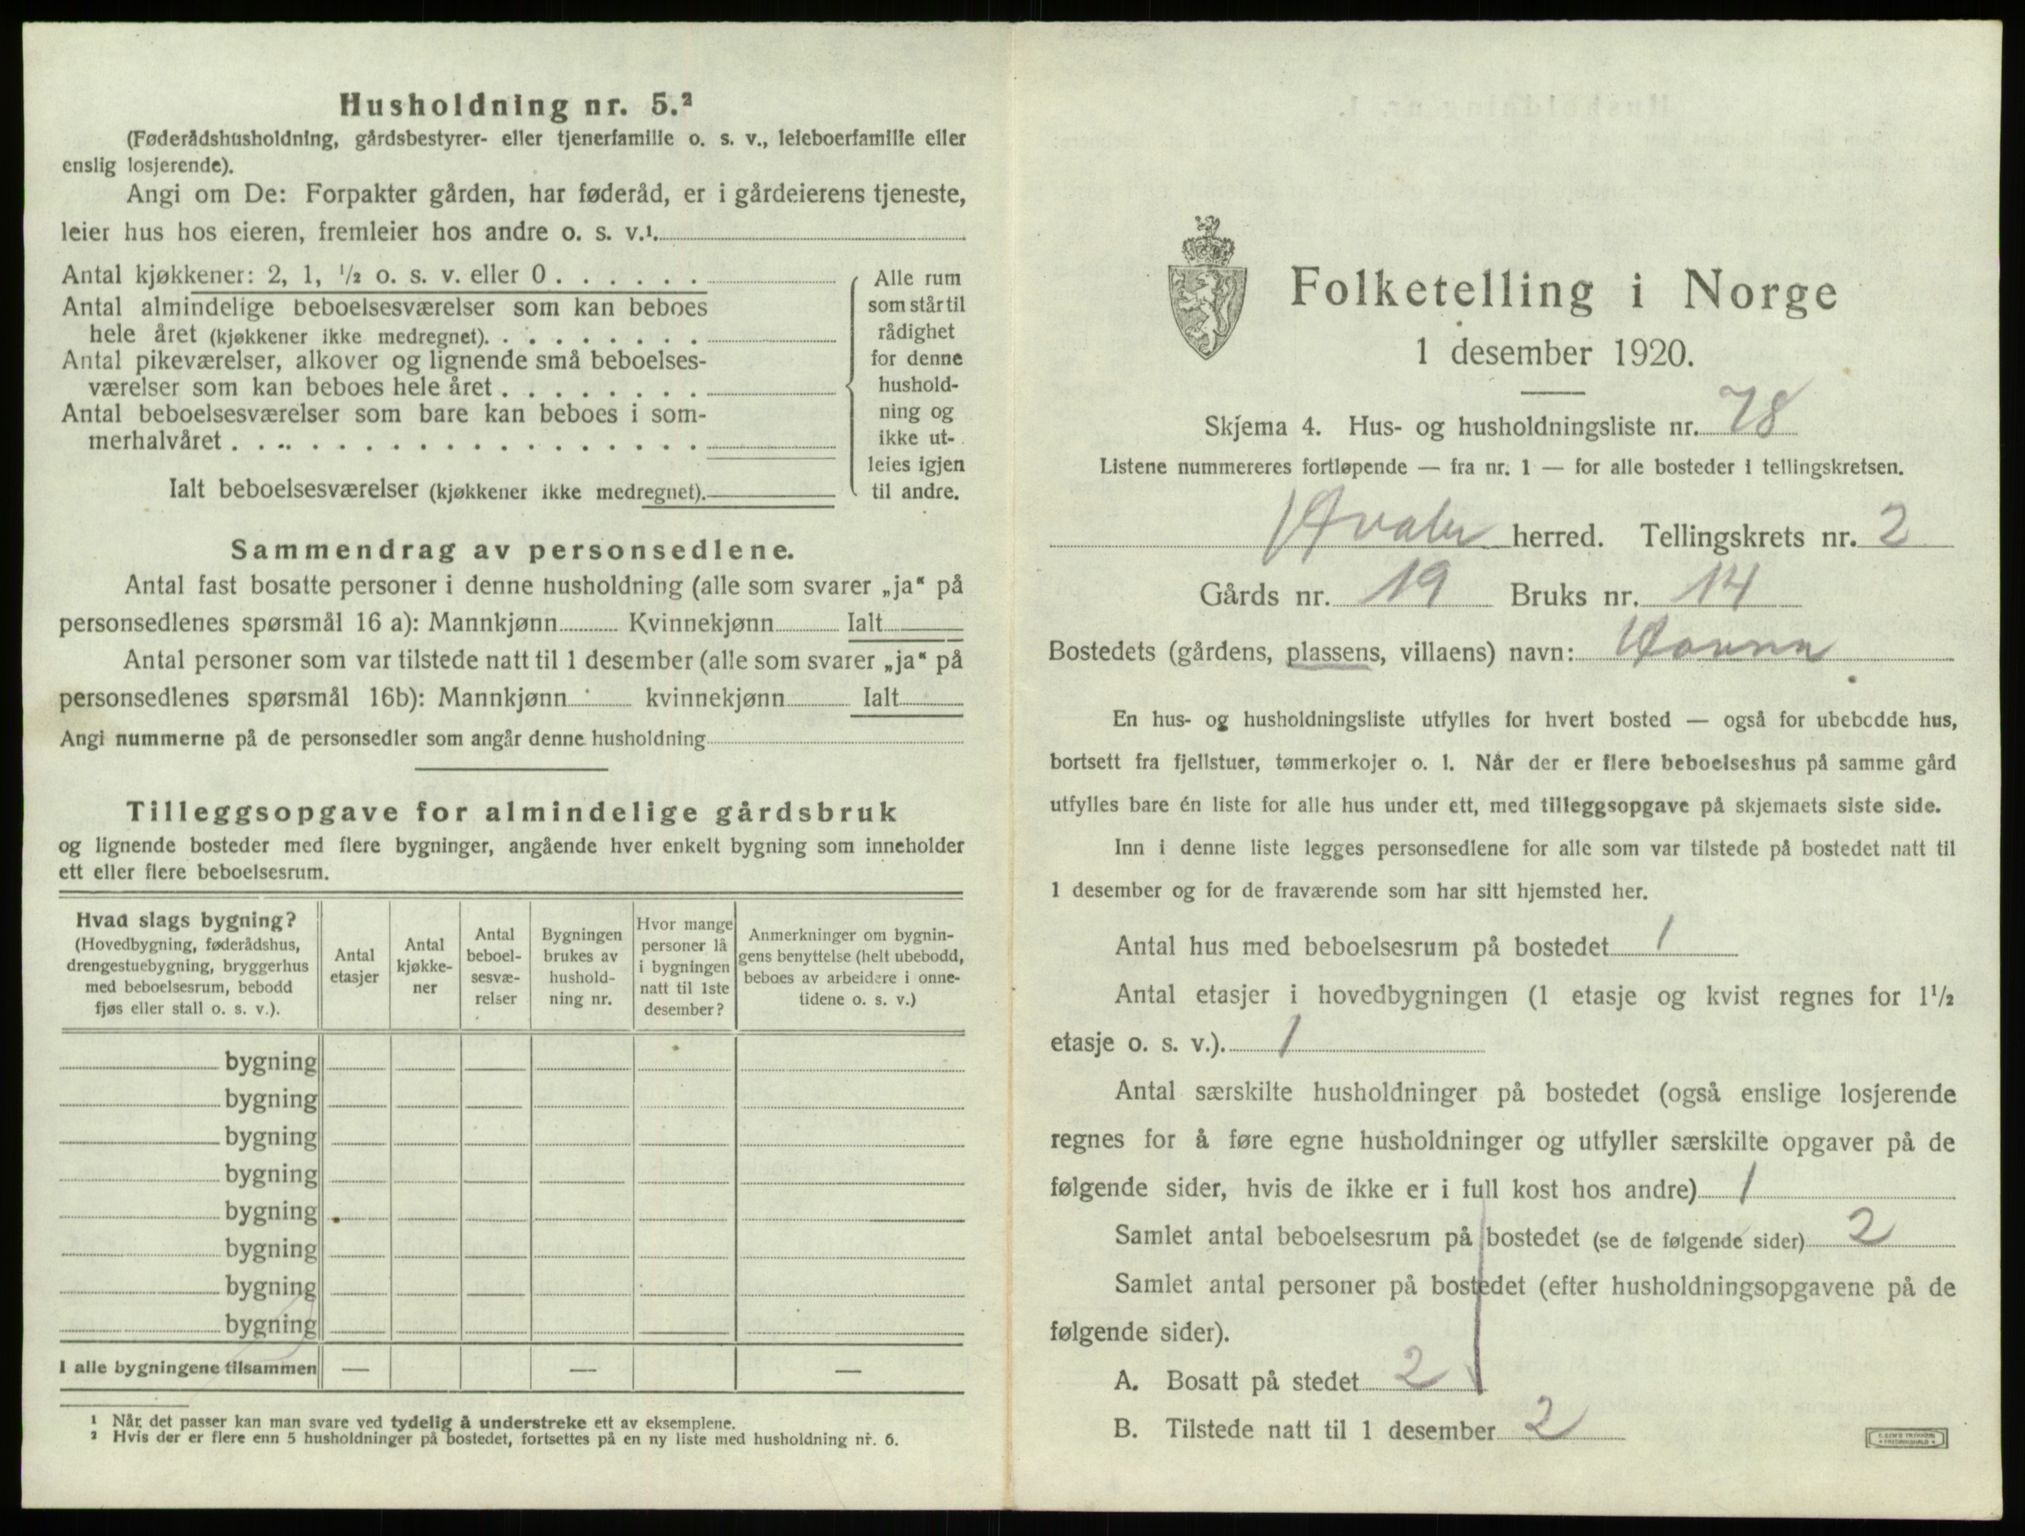 Husholdning nr. 5.²
(Føderådshusholdning, gårdsbestyrer- eller tjenerfamilie o. s. v., leieboerfamilie eller
enslig losjerende).
Angi om De: Forpakter gården, har føderåd, er i gårdeierens tjeneste,
leier hus hos eieren, fremleier hos andre o. s. v.¹
Antal kjøkkener: 2, 1, ½ o. s. v. eller 0 . . . . . .
Antal almindelige beboelsesværelser som kan beboes
hele året (kjøkkener ikke medregnet). . . . . . . . .
Antal pikeværelser, alkover og lignende små beboelses-
værelser som kan beboes hele året . . . . . . . .
Antal beboelsesværelser som bare kan beboes i som-
merhalvåret . . . . . . . . . . . . . . . . . .
Ialt beboelsesværelser (kjøkkener ikke medregnet).
Alle rum
som står til
rådighet
for denne
hushold-
ning og
ikke ut-
leies igjen
til andre.
Sammendrag av personsedlene.
Antal fast bosatte personer i denne husholdning (alle som svarer „ja“ på
personsedlenes spørsmål 16 a): Mannkjønn Kvinnekjønn Ialt
Antal personer som var tilstede natt til 1 desember (alle som svarer „ja“ på
personsedlenes spørsmål 16b): Mannkjønn kvinnekjønn Ialt
Angi nummerne på de personsedler som angår denne husholdning
Tilleggsopgave for almindelige gårdsbruk
og lignende bosteder med flere bygninger, angående hver enkelt bygning som inneholder
ett eller flere beboelsesrum.
Hvad slags bygning?
(Hovedbygning, føderådshus,
drengestuebygning, bryggerhus
med beboelsesrum, bebodd
fjøs eller stall o. s. v.).
Antal
etasjer
Antal
kjøkke-
ner
Antal
beboel-
sesvæ-
relser
Bygningen
brukes av
hushold-
ning nr.
Hvor mange
personer lå
i bygningen
natt til 1ste
desember?
Anmerkninger om bygnin-
gens benyttelse (helt ubebodd,
beboes av arbeidere i onne-
tidene o. s. v.)
bygning
bygning
bygning
bygning
bygning
bygning
bygning
bygning
I alle bygningene tilsammen — — —
¹ Når det passer kan man svare ved tydelig å understreke ett av eksemplene.
² Hvis der er flere enn 5 husholdninger på bostedet, fortsettes på en ny liste med husholdning nr. 6.
Folketelling i Norge
1 desember 1920.
Skjema 4. Hus- og husholdningsliste nr. 78
Listene nummereres fortløpende — fra nr. 1 — for alle bosteder i tellingskretsen.
Hvaler herred. Tellingskrets nr. 2
Gårds nr. 19 Bruks nr. 14
Bostedets (gårdens, plassens, villaens) navn: Havna
En hus- og husholdningsliste utfylles for hvert bosted — også for ubebodde hus,
bortsett fra fjellstuer, tømmerkojer o. l. Når der er flere beboelseshus på samme gård
utfylles bare én liste for alle hus under ett, med tilleggsopgave på skjemaets siste side.
Inn i denne liste legges personsedlene for alle som var tilstede på bostedet natt til
1 desember og for de fraværende som har sitt hjemsted her.
Antal hus med beboelsesrum på bostedet 1
Antal etasjer i hovedbygningen (1 etasje og kvist regnes for 1½
etasje o. s. v.). 1
Antal særskilte husholdninger på bostedet (også enslige losjerende
regnes for å føre egne husholdninger og utfyller særskilte opgaver på de
følgende sider, hvis de ikke er i full kost hos andre) 1
Samlet antal beboelsesrum på bostedet (se de følgende sider) 2
Samlet antal personer på bostedet (efter husholdningsopgavene på de
følgende sider).
A. Bosatt på stedet 2
B. Tilstede natt til 1 desember 2